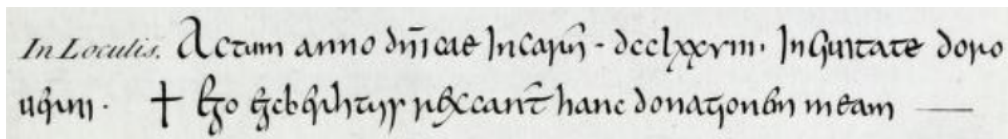 In Loculis. Actum anno dn̄icae Incarn̄ - dcclxxviii. In Ciuitate doro
uerni · + Ego Egcberhtus rex Cant̄ hanc donationem meam —